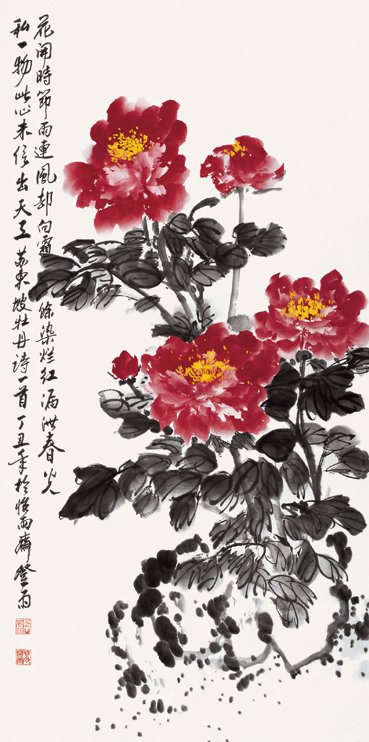 花開時節雨連風却向霜餘染爛紅漏洩春光
私一物此心未信出天工蘇東坡牡丹詩一首丁丑年於悟雨齋登雨